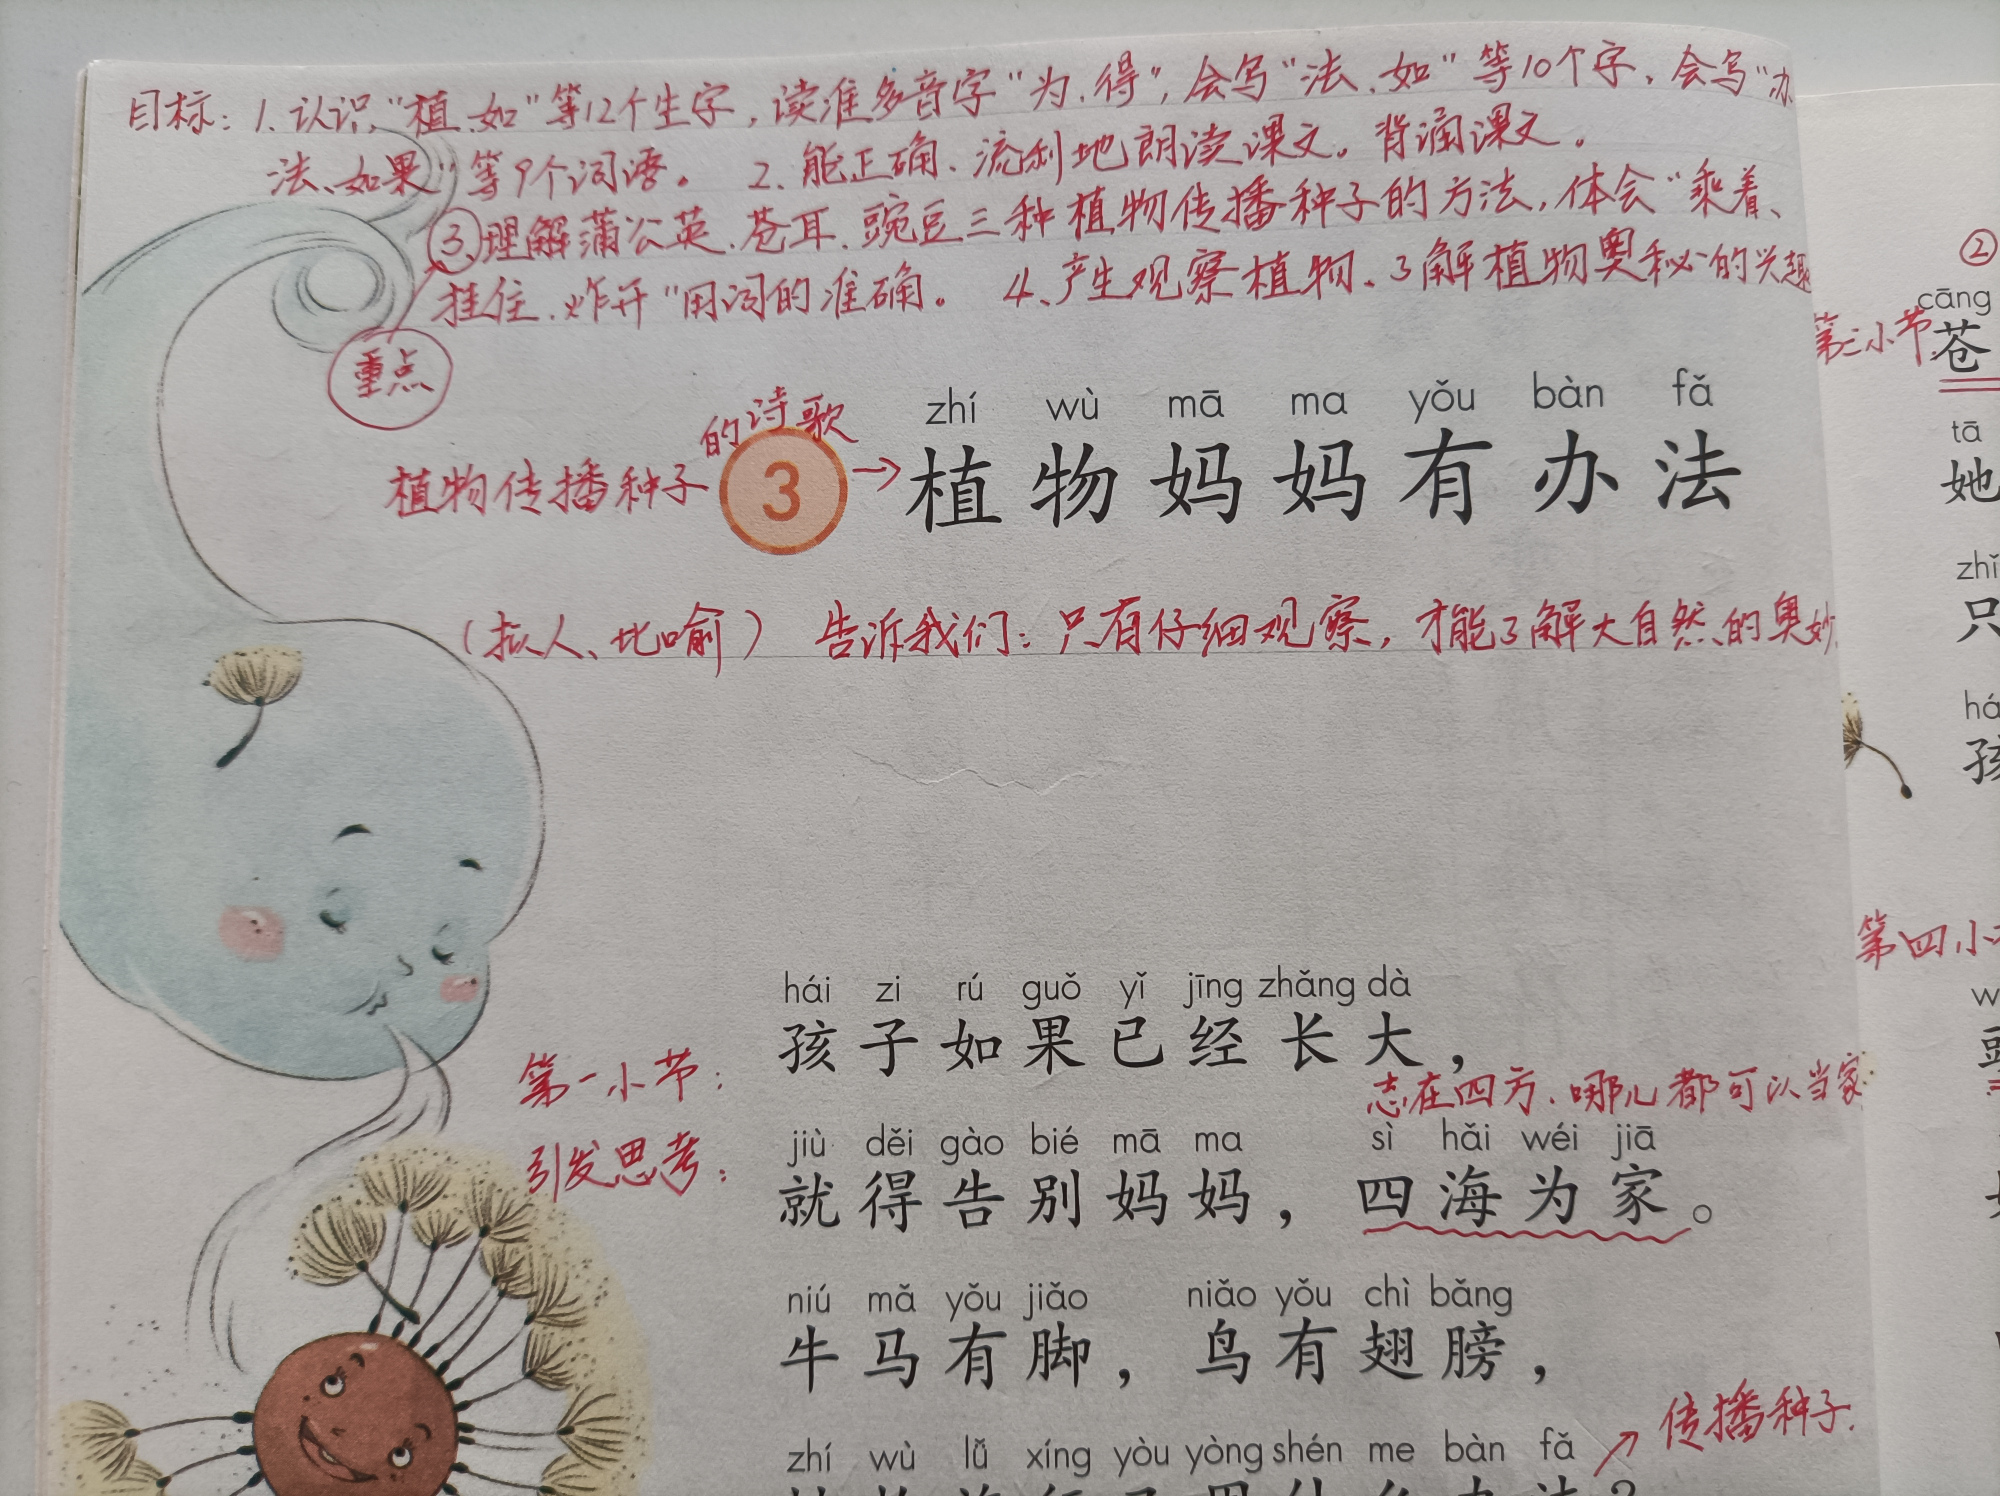 目标：1.认识"植、如"等12个生字，读准多音字"为、得"，会写"法、如"等10个字，会写"办
法、如果"等9个词语。 2.能正确、流利地朗读课文。背诵课文。
③理解蒲公英、苍耳、豌豆三种植物传播种子的方法，体会"乘着、
挂住、炸开"用词的准确。 4、产生观察植物、了解植物奥秘的兴趣
重点
的诗歌
zhí wù mā ma yǒu bàn fǎ
植物传播种子 3 → 植物妈妈有办法
（拟人、比喻） 告诉我们：只有仔细观察，才能了解大自然的奥妙
hái zi rú guǒ yǐ jīng zhǎng dà
第一小节： 孩子如果已经长大，
志在四方、哪儿都可以当家
jiù děi gào bié mā ma sì hǎi wéi jiā
引发思考： 就得告别妈妈，四海为家。
niú mǎ yǒu jiǎo niǎo yǒu chì bǎng
牛马有脚，鸟有翅膀，
传播种子.
zhí wù lǚ xíng yòu yòng shén me bàn fǎ
②
cāng
第三小节 苍
tā
她
zhǐ
只
há
孩
第四小
w